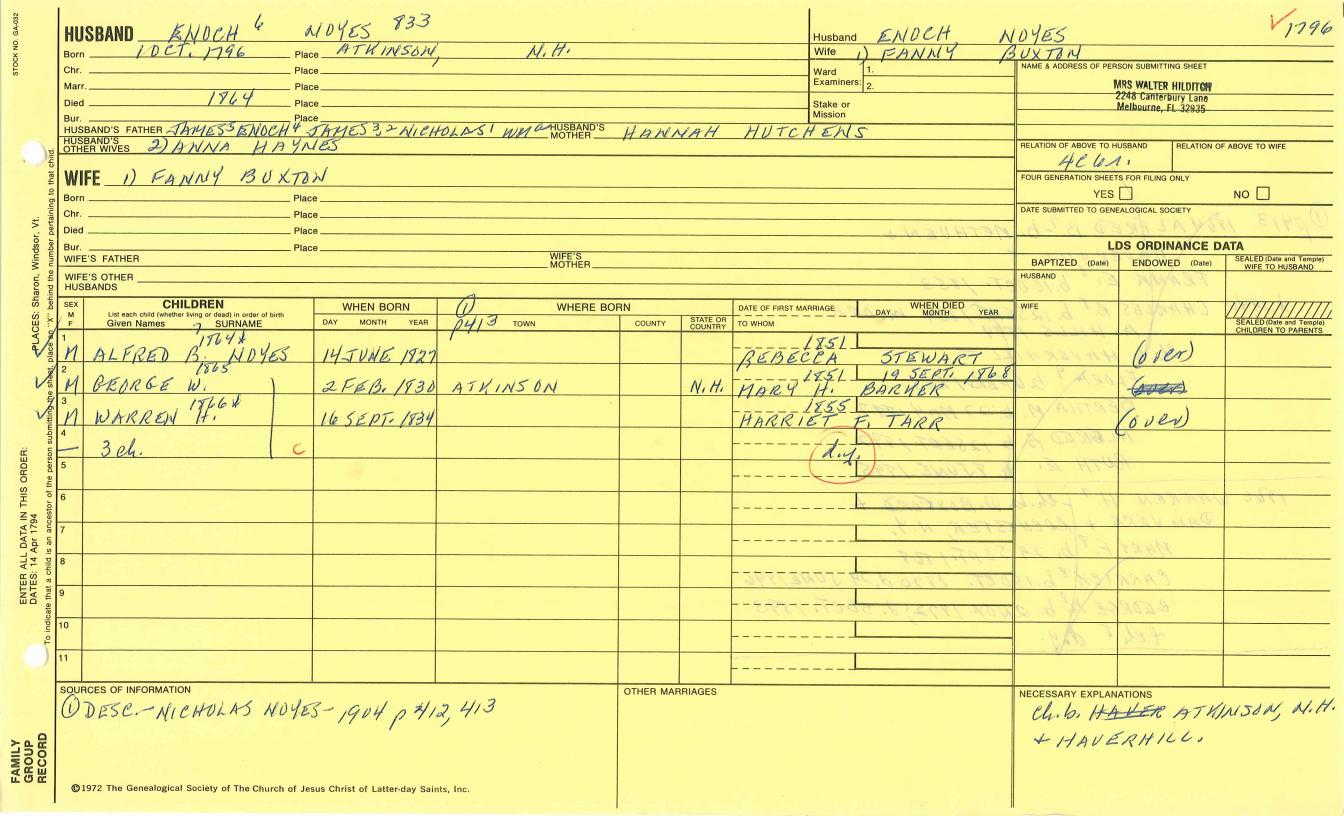 STOCK NO. GA-032
HUSBAND ENOCH 6 NOYES 833
Born 1 OCT. 1796 Place ATKINSON, N.H.
Chr. Place
Marr. Place
Died 1864 Place
Bur. Place
HUSBAND'S FATHER JAMES5 ENOCH4 JAMES3,2 NICHOLAS1 HUSBAND'S MOTHER HANNAH HUTCHENS
HUSBAND'S OTHER WIVES 2) ANNA HAYNES
Husband ENOCH NOYES 1796
Wife 1) FANNY BUXTON
Ward Examiners: 1.
2.
Stake or Mission
NAME & ADDRESS OF PERSON SUBMITTING SHEET
MRS WALTER HILDITCH
2248 Canterbury Lane
Melbourne, FL 32935
RELATION OF ABOVE TO HUSBAND RELATION OF ABOVE TO WIFE
FOUR GENERATION SHEETS FOR FILING ONLY
YES NO
DATE SUBMITTED TO GENEALOGICAL SOCIETY
WIFE 1) FANNY BUXTON
Born Place
Chr. Place
Died Place
Bur. Place
WIFE'S FATHER WIFE'S MOTHER
WIFE'S OTHER HUSBANDS
LDS ORDINANCE DATA
BAPTIZED (Date) ENDOWED (Date) SEALED (Date and Temple) WIFE TO HUSBAND
HUSBAND
WIFE
SEALED (Date and Temple) CHILDREN TO PARENTS
SEX M F CHILDREN WHEN BORN ① WHERE BORN DATE OF FIRST MARRIAGE WHEN DIED
List each child (whether living or dead) in order of birth
Given Names SURNAME DAY MONTH YEAR p413 TOWN COUNTY STATE OR COUNTRY TO WHOM DAY MONTH YEAR
1 ? 1864x 1851
M ALFRED B. NOYES 14 JUNE 1827 REBECCA STEWART (over)
2 1865 1851 19 SEPT. 1868
M GEORGE W. 2 FEB. 1830 ATKINSON N.H. MARY H. BARKER
3 1866x 1855
M WARREN H. 16 SEPT. 1834 HARRIET F. TARR (over)
4
— 3 ch. C d.y.
5
6
7
8
9
10
11
SOURCES OF INFORMATION
① DESC.- NICHOLAS NOYES- 1904 p 412, 413
OTHER MARRIAGES
NECESSARY EXPLANATIONS
ch. b. HAVER ATKINSON, N.H.
+ HAVERHILL.
©1972 The Genealogical Society of The Church of Jesus Christ of Latter-day Saints, Inc.
FAMILY GROUP RECORD
ENTER ALL DATA IN THIS ORDER:
DATES: 14 Apr 1794
PLACES: Sharon, Windsor, Vt.
To indicate that a child is an ancestor of the person submitting the sheet, place an "X" behind the number pertaining to that child.